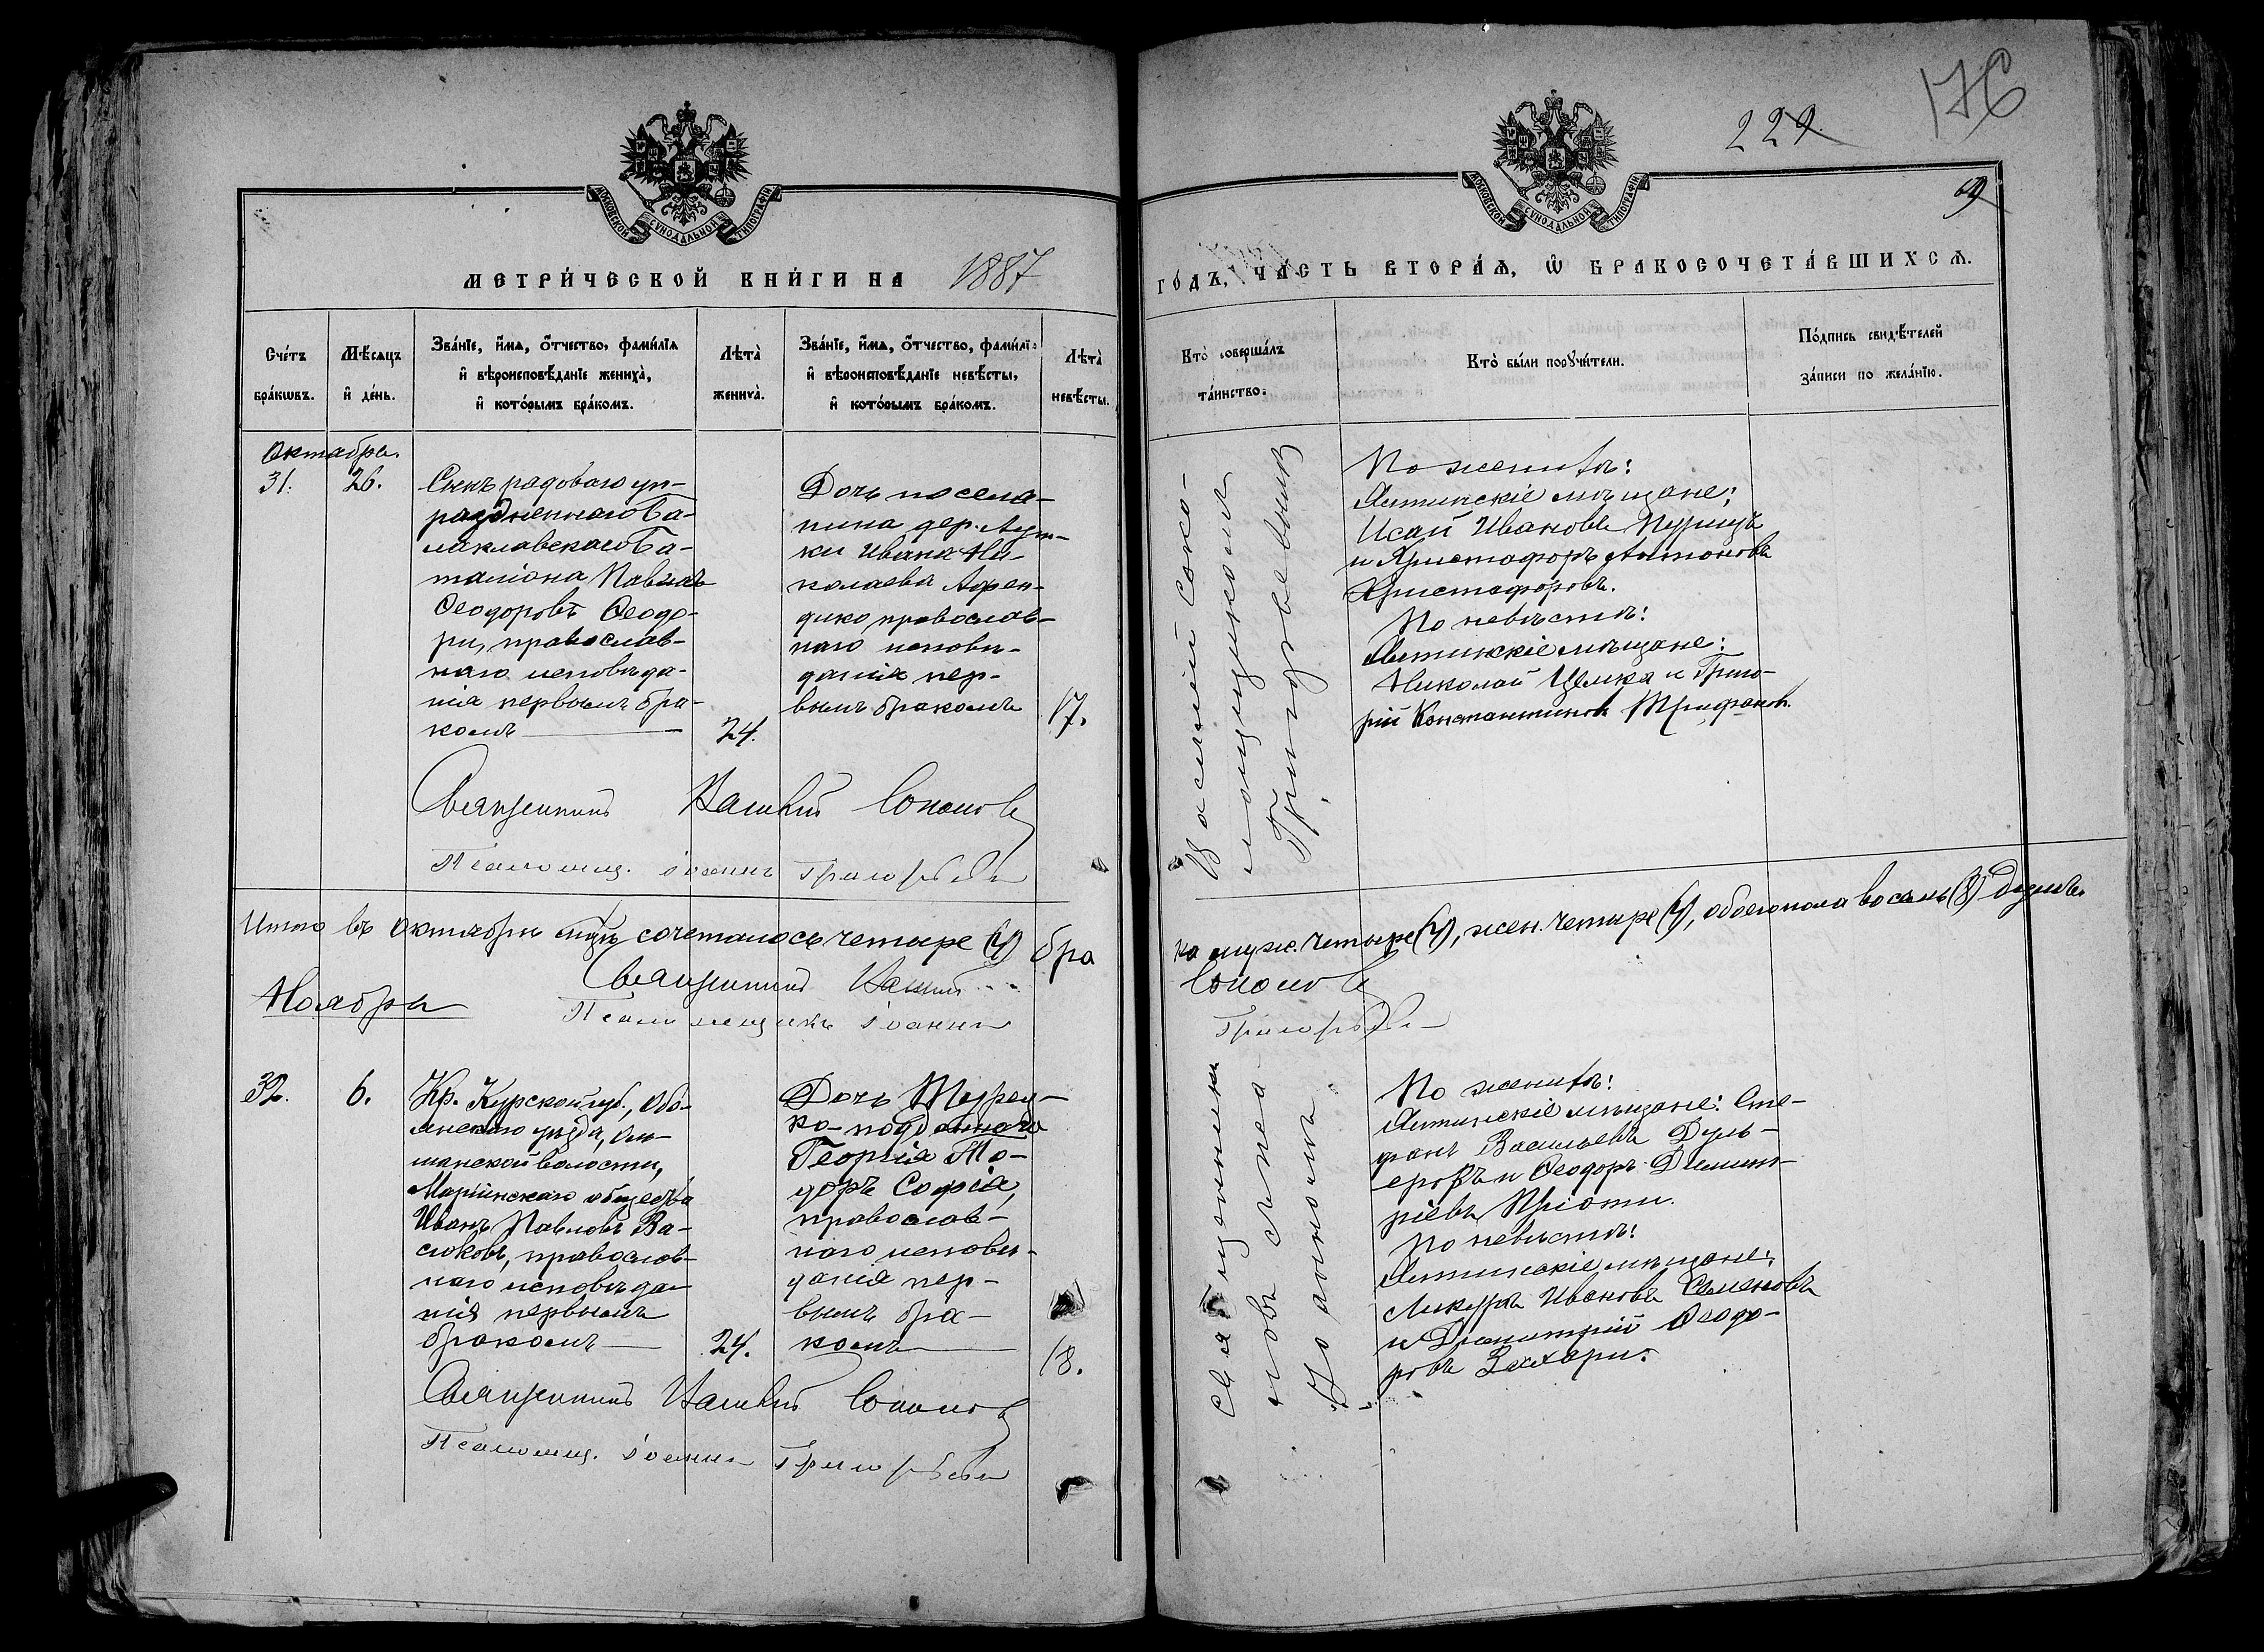 176
229.
69
МОСКОВСКОЙ СУНОДАЛЬНОЙ ТИПОГРАФІИ
МОСКОВСКОЙ СУНОДАЛЬНОЙ ТИПОГРАФІИ
МЕТРИ́ЧЕСКОЙ КНИ́ГИ НА 1887
ГО́ДЪ, ЧА́СТЬ ВТОРА́Ѧ, Ѡ҆ БРАКОСОЧЕТА́ВШИХСѦ.
Сче́тъ
бра́кѡвъ.
Мѣ́сѧцъ
и҆ де́нь.
Зва́нїе, и҆́мѧ, ѻ҆́тчество, фами́лїѧ
и҆ вѣроисповѣ́данїе жениха̀,
и҆ кото́рымъ бра́комъ.
Лѣта̀
жениха̀.
Зва́нїе, и҆́мѧ, ѻ҆́тчество, фами́лїѧ
и҆ вѣроисповѣ́данїе невѣ́сты,
и҆ кото́рымъ бра́комъ.
Лѣта̀
невѣ́сты.
Кто̀ соверша́лъ
та́инство.
Кто̀ бы́ли порꙋчи́тели.
По́дпись свидѣ́телей
за́писи по жела́нїю.
Октября.
31.
26.
Сынъ рядоваго уп-
раздненнаго Ба-
лаклавскаго Ба-
таліона Павелъ
Ѳеодоровъ Ѳеодо-
ри, православ-
наго исповѣда-
нія первымъ бра-
комъ
24.
Дочь поселя-
нина дер. Аут-
ки Ивана Ни-
колаева Афен-
дико, православ-
наго исповѣ-
данія пер-
вымъ бракомъ
17.
Василій Соко-
ловъ съ псалом-
щикомъ
Григорьевымъ
По женихѣ:
Ялтинскіе мѣщане:
Исай Ивановъ
и Христофоръ Антоновъ
Христофоровъ.
По невѣстѣ:
Ялтинскіе мѣщане:
Николай Цемка и Григо-
рій Константиновъ Трифоновъ.
Священникъ Василій Соколовъ
Псаломщ. Іоаннъ Григорьевъ
Итого въ Октябрѣ мѣс. сочеталось четыре (4) бра
ка муж. четыре (4), жен. четыре (4), обоего пола восемь (8) душъ.
Священникъ Василій Соколовъ
Псаломщикъ Іоаннъ Григорьевъ
Ноября
32.
6.
Кр. Курской губ., Обо-
янскаго уѣзда,
шанской волости,
Маріинскаго общества
Иванъ Павловъ Ва-
сюковъ, православ-
наго исповѣда-
нія первымъ
бракомъ
24.
Дочь Турец-
ко-подданнаго
Георгія То-
доръ Софія,
православ-
наго исповѣ-
данія пер-
вымъ бра-
комъ
18.
По женихѣ:
Ялтинскіе мѣщане: Сте-
фанъ Васильевъ Дуль-
еровъ и Ѳеодоръ Димит-
ріевъ
По невѣстѣ:
Ялтинскіе мѣщане:
Ивановъ Семеновъ
и Димитрій Ѳеодо-
ровъ Захари.
Священникъ Василій Соколовъ
Псаломщ. Іоаннъ Григорьевъ